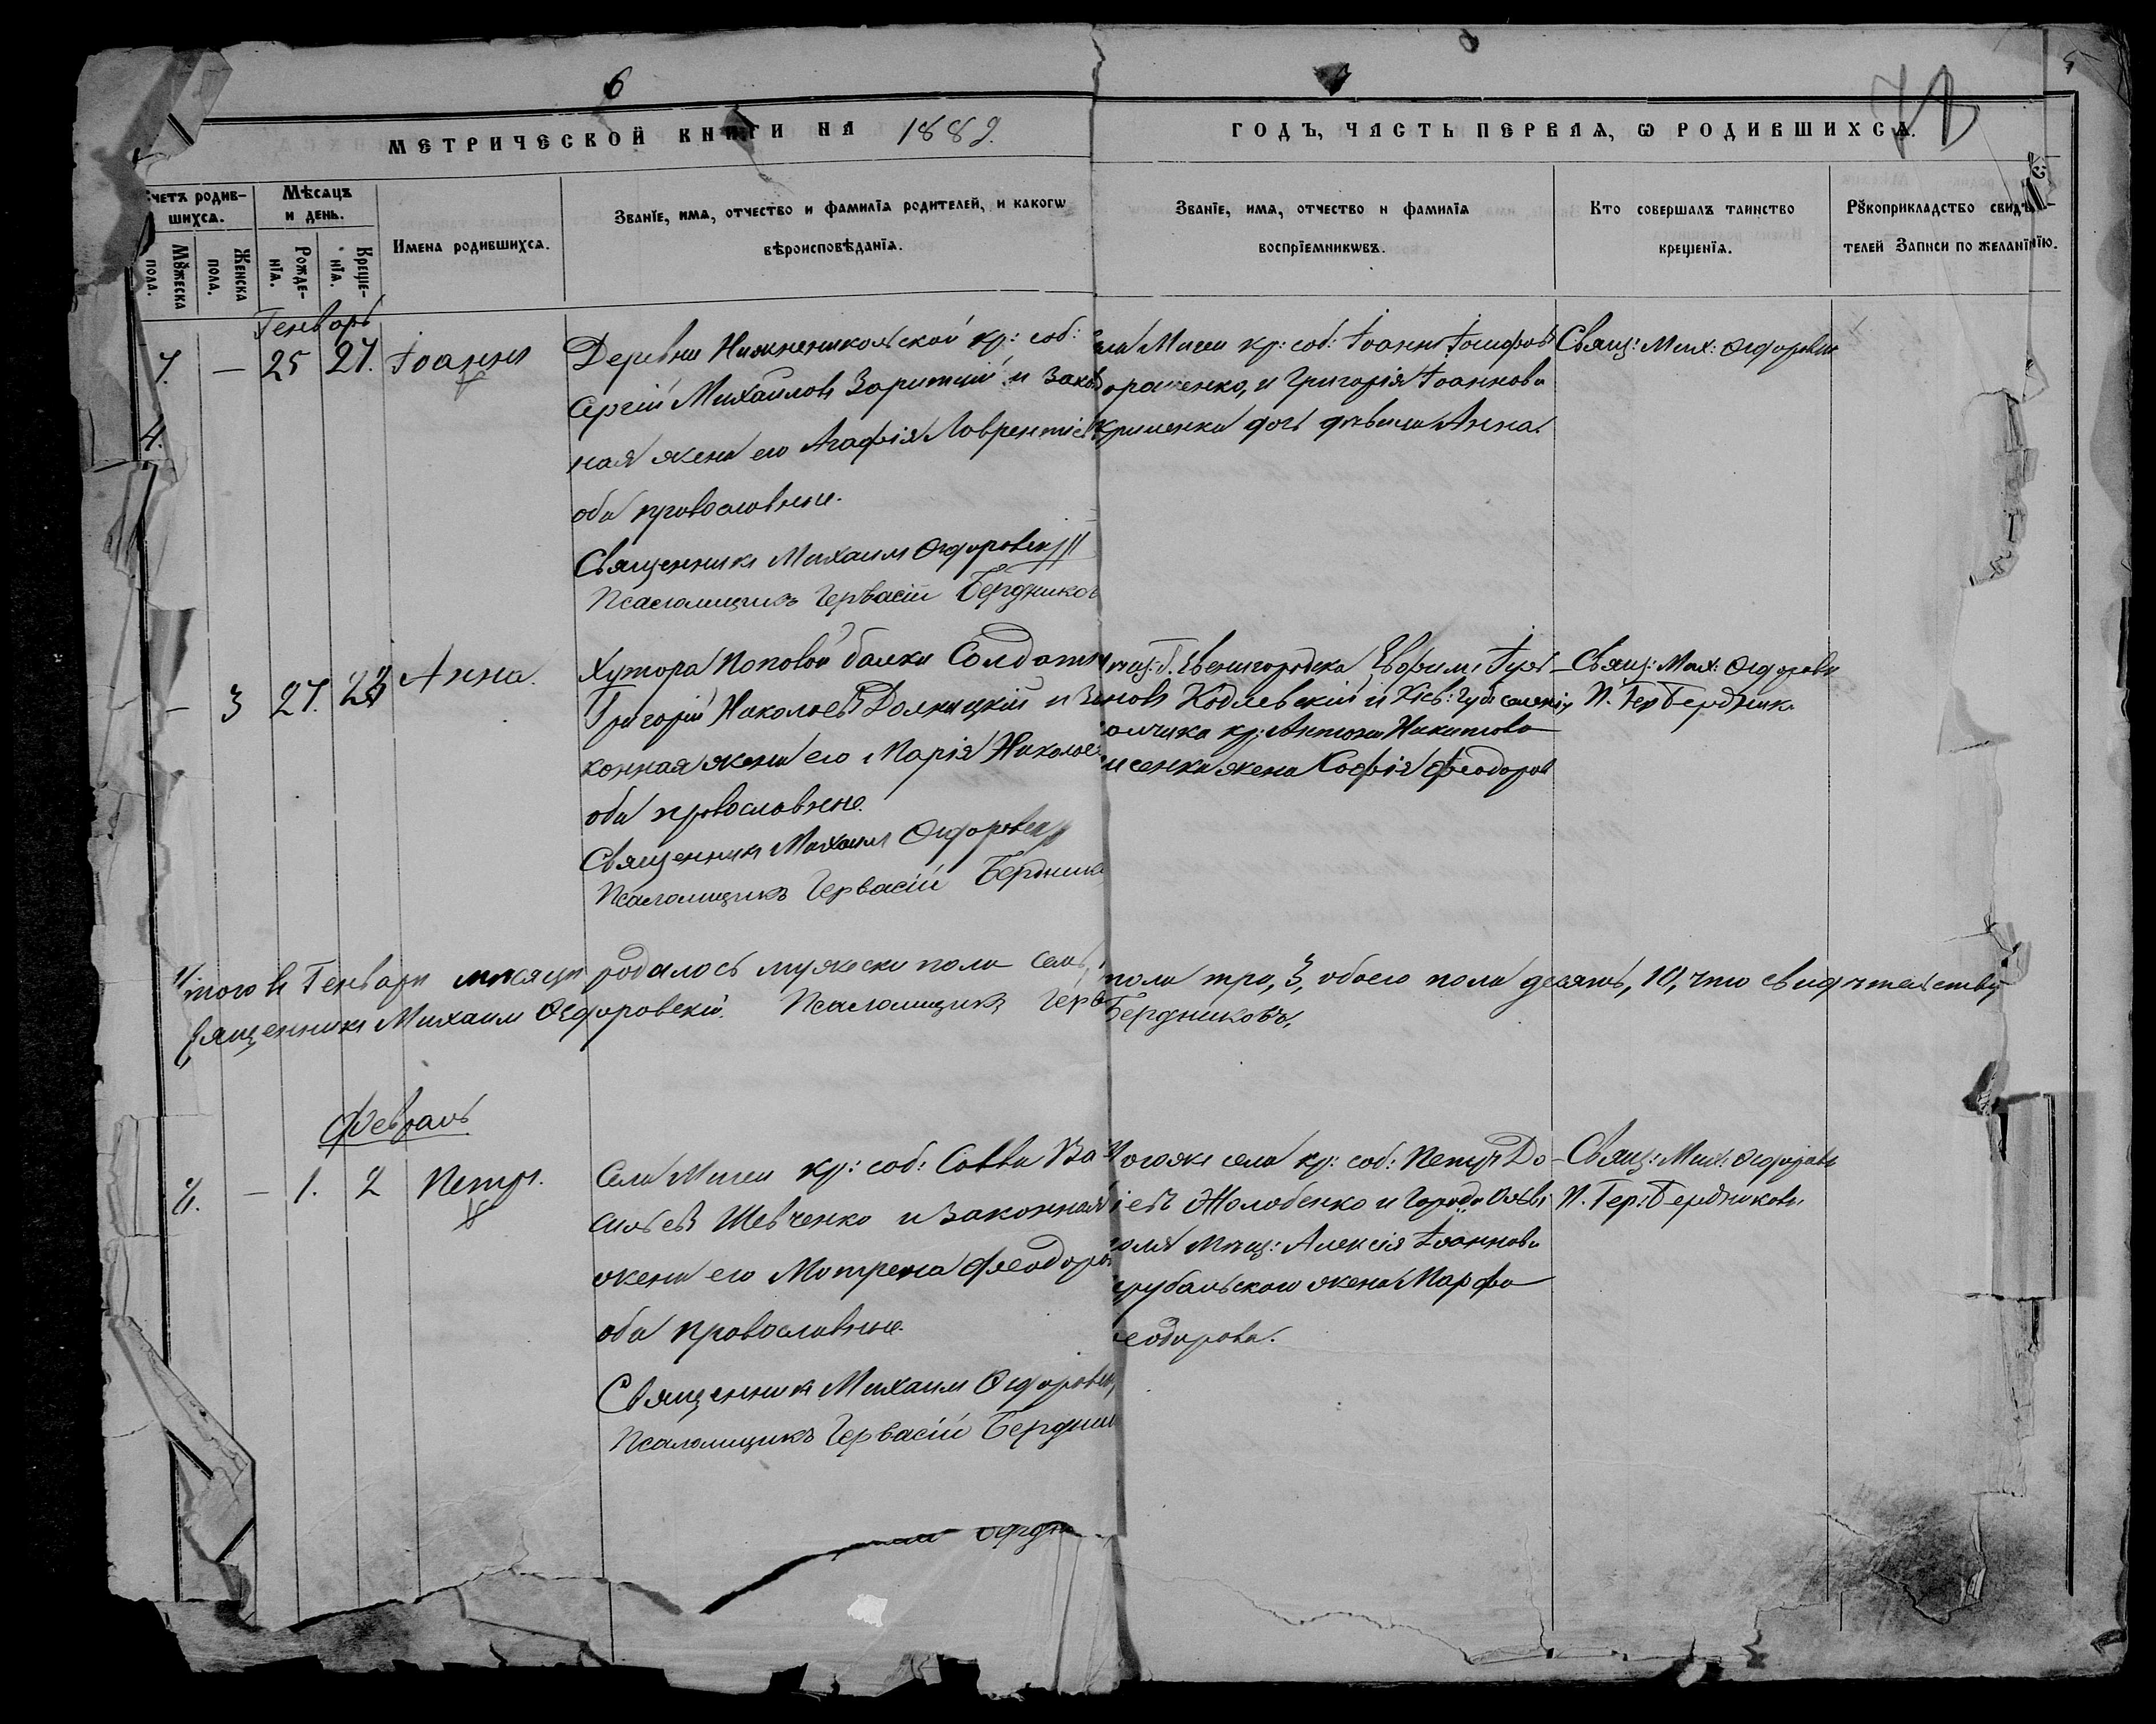 6
МЕТРИЧЕСКОЙ КНИГИ НА 1882.
ГОДЪ, ЧАСТЬ ПЕРВАЯ, Ѡ РОДИВШИХСѦ.
Счетъ родив-
шихсѧ.
Мꙋжеска
пола.
Женска
пола.
Мѣсѧцъ
и день.
Рожде-
нїѧ.
Креще-
нїѧ.
Имена родившихсѧ.
Званїе, имѧ, отчество и фамилїѧ родителей, и какогѡ
вѣроисповѣданїѧ.
Званїе, имѧ, отчество и фамилїѧ
воспрїемникѡвъ.
Кто совершалъ таинство
крещенїѧ.
Рꙋкоприкладство свидѣ-
телей Записи по желанїю.
Генварь
7. — 25 27. Іоаннъ
4.
Деревни Нижненикольской кр: соб:
Сергій Михайловъ Зарицкій и закон
ная жена его Агафія Лаврентіева
оба православные.
Священникъ Михаилъ Ѳедоровскій
Псаломщикъ Гервасій Бердников
ела Мигеи кр: соб: Іоаннъ Іосифовъ
и Григорія Іоаннова
дочь дѣвица Анна.
Свящ: Мих: Ѳедоровск
— 3 27. Анна.
Хутора Поповой балки Солдатъ
Григорій Николаевъ и За
конная жена его Марія Николае
оба православные.
Священникъ Михаилъ Ѳедоровск
Псаломщикъ Гервасій Бердник
мѣщ: г. Звенигородка Евфимъ
новъ Кодлевскій и Кіев: Губ:
кр: Антона Никитова
сенка жена Софія Феодоров
Свящ: Мих: Ѳедоровск
П. Гер. Бердник.
Итого въ Генварѣ мѣсяцѣ родилось мужеска пола семь,
пола три, 3, обоего пола десять, 10, что свидѣтельству
Священникъ Михаилъ Ѳедоровскій. Псаломщикъ Герв
Бердниковъ.
Февраль
8. — 1. 2 Петръ.
Села Мигеи кр: соб: Савва Ва
сильевъ Шевченко и законная
жена его Мотрена Феодоро
оба православные.
Священникъ Михаилъ Ѳедоровск
Псаломщикъ Гервасій Бердник
тогоже села кр: соб: Петръ До
іевъ Жолобенко и Города Ольві
оля мѣщ: Алексія Іоаннова
жена Марфа
еодорова.
Свящ: Мих: Ѳедоровск
П. Гер: Бердниковъ.